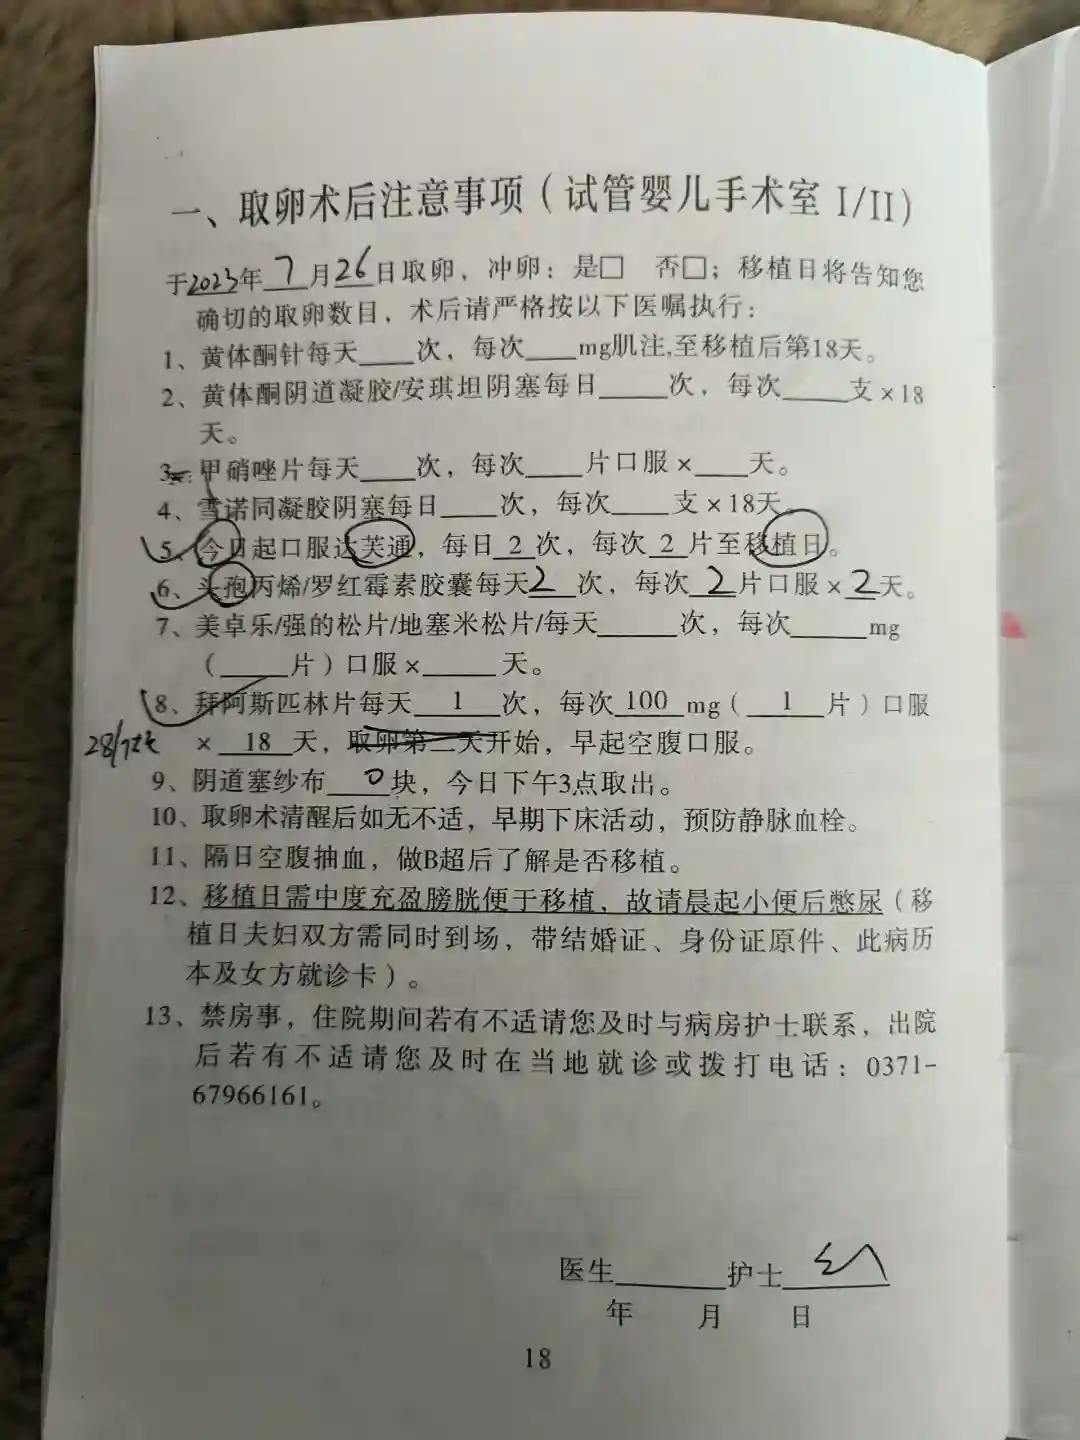 一、取卵术后注意事项（试管婴儿手术室 I/II）
于2023年 7 月26日取卵，冲卵：是□ 否□；移植日将告知您
确切的取卵数目，术后请严格按以下医嘱执行：
1、黄体酮针每天____次，每次____mg肌注,至移植后第18天。
2、黄体酮阴道凝胶/安琪坦阴塞每日_____次，每次_____支×18
天。
3、甲硝唑片每天____次，每次____片口服×____天。
4、雪诺同凝胶阴塞每日____次，每次____支×18天。
5、今日起口服达芙通，每日 2 次，每次 2 片至移植日。
6、头孢丙烯/罗红霉素胶囊每天2 次，每次 2 片口服×2天。
7、美卓乐/强的松片/地塞米松片/每天______次，每次______mg
（_____片）口服×______天。
8、拜阿斯匹林片每天 1 次，每次 100 mg（ 1 片）口服
28/7 × 18 天，取卵第二天开始，早起空腹口服。
9、阴道塞纱布 0 块，今日下午3点取出。
10、取卵术清醒后如无不适，早期下床活动，预防静脉血栓。
11、隔日空腹抽血，做B超后了解是否移植。
12、移植日需中度充盈膀胱便于移植，故请晨起小便后憋尿（移
植日夫妇双方需同时到场，带结婚证、身份证原件、此病历
本及女方就诊卡）。
13、禁房事，住院期间若有不适请您及时与病房护士联系，出院
后若有不适请您及时在当地就诊或拨打电话：0371-
67966161。
医生________护士
年 月 日
18